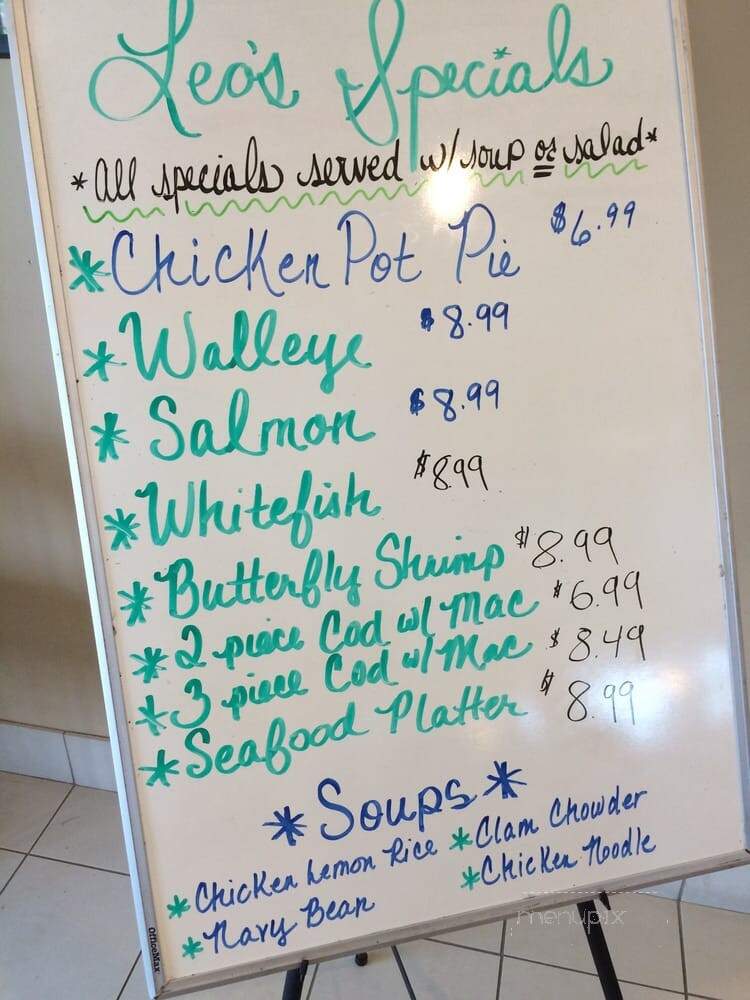 Leo's Specials
*All specials served w/soup or salad*
*Chicken Pot Pie $6.99
*Walleye $8.99
*Salmon $8.99
*Whitefish $8.99
*Butterfly Shrimp $8.99
*2 piece Cod w/ Mac $6.99
*3 piece Cod w/ Mac $8.49
*Seafood Platter $8.99
*Soups*
*Chicken Lemon Rice *Clam Chowder
*Navy Bean *Chicken Noodle
OfficeMax
menupix